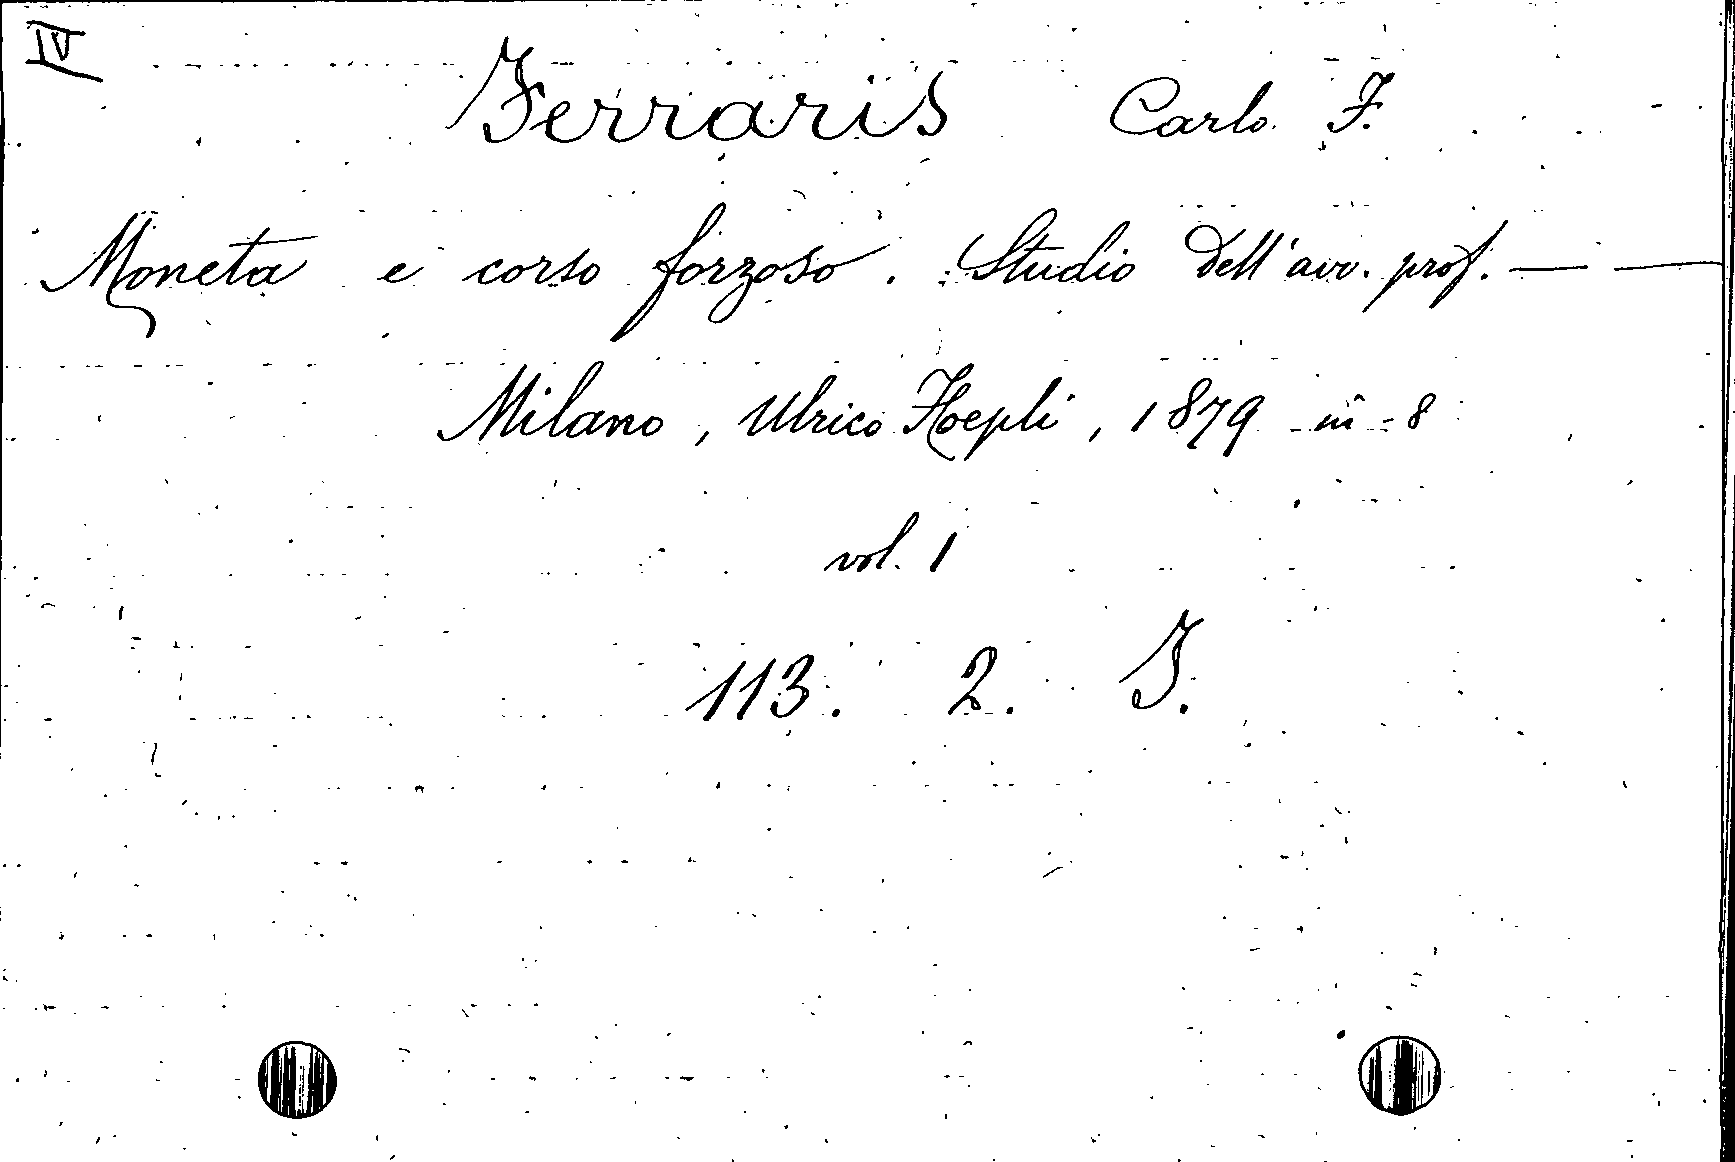 IV
Ferraris Carlo F.
Moneta e corso forzoso. Studio dell'avv. prof. — —
Milano, Ulrico Hoepli, 1879 in-8
vol. 1
113. 2. I.